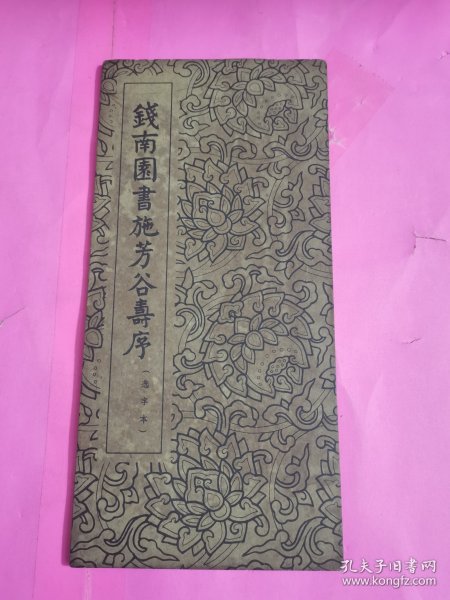 錢南園書施芳谷壽序
（选字本）
孔夫子旧书网
www.kongfz.com